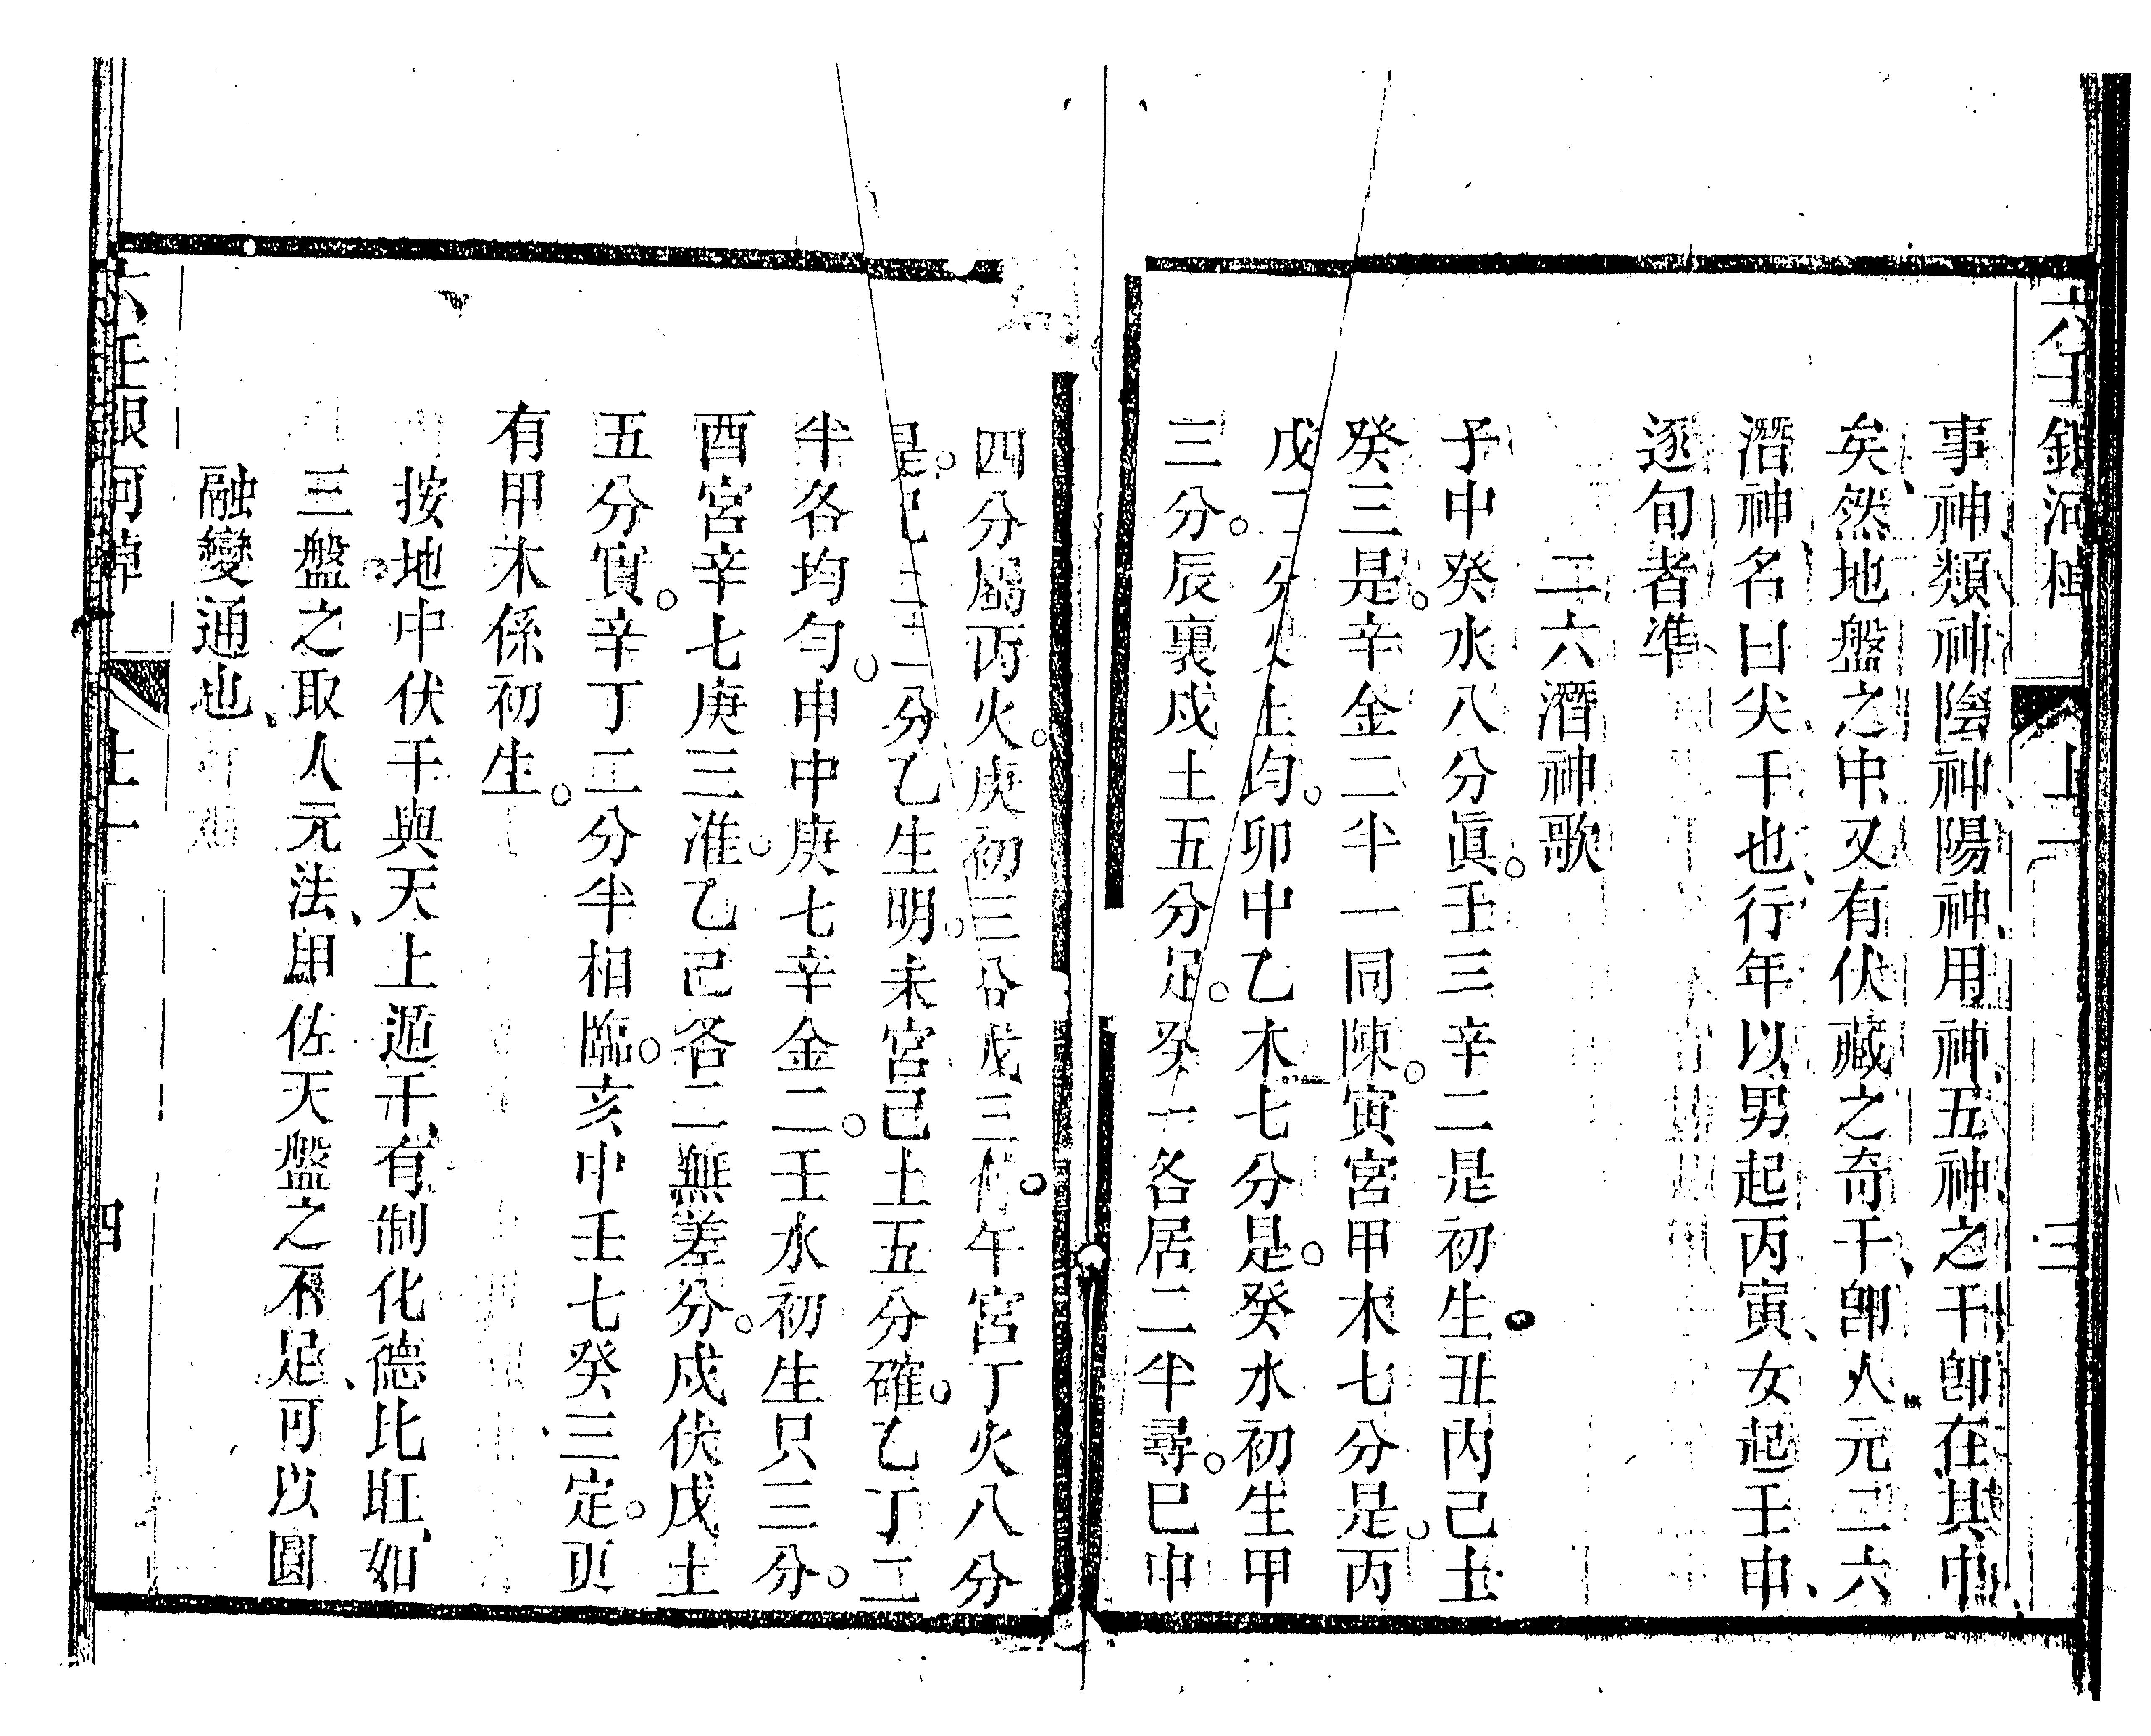 六壬銀河棹 上一 三
事神、類神、陰神、陽神、用神、五神之干、卽在其中
矣、然地盤之中、又有伏藏之奇干、卽人元二六
潛神名曰尖干也、行年以男起丙寅、女起壬申、
逐旬者準、
二六潛神歌
子中癸水八分眞。壬三辛二是初生。丑內己土
癸三是。辛金二半一同陳。寅宮甲木七分是。丙
戊二分火土均。卯中乙木七分是。癸水初生甲
三分。辰裏戊土五分足。癸 各居二半尋。巳中
四分屬丙火。庚初三分戊三 。午宮丁火八分
是。己土二分乙生明。未宮己土五分確。乙丁二
半各均勻。申中庚七辛金二。壬水初生只三分。
酉宮辛七庚三准。乙己各二無差分。戌伏戊土
五分實。辛丁二分半相臨。亥中壬七癸三定。更
有甲木係初生。
按地中伏干與天上遁干、有制化德比旺、如
三盤之取人元法、用佐天盤之不足、可以圓
融變通也、
六壬銀河棹 上一 四